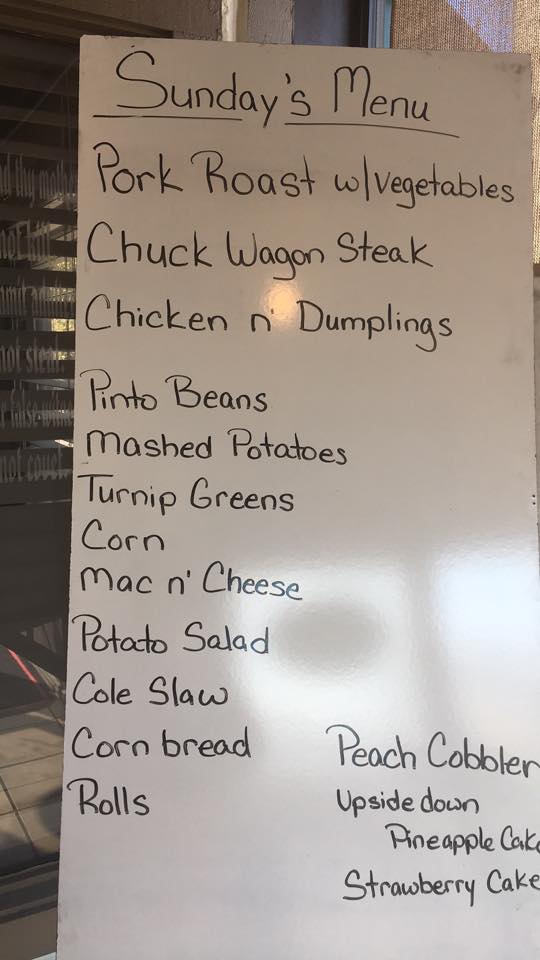 Sunday's Menu
Pork Roast w/vegetables
Chuck Wagon Steak
Chicken n' Dumplings
Pinto Beans
Mashed Potatoes
Turnip Greens
Corn
Mac n' Cheese
Potato Salad
Cole Slaw
Corn bread
Rolls
Peach Cobbler
Upside down
Pineapple Cake
Strawberry Cake
not steal
not covet